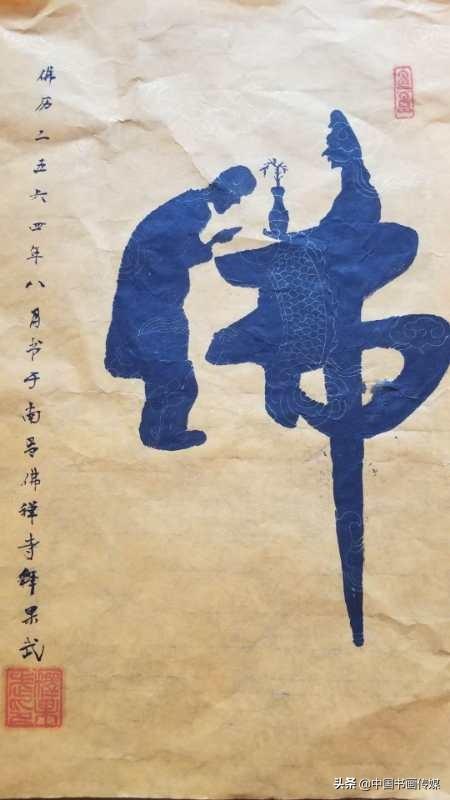 佛
佛历二五六四年八月书于南昌佛禅寺释果武
头条 @中国书画传媒